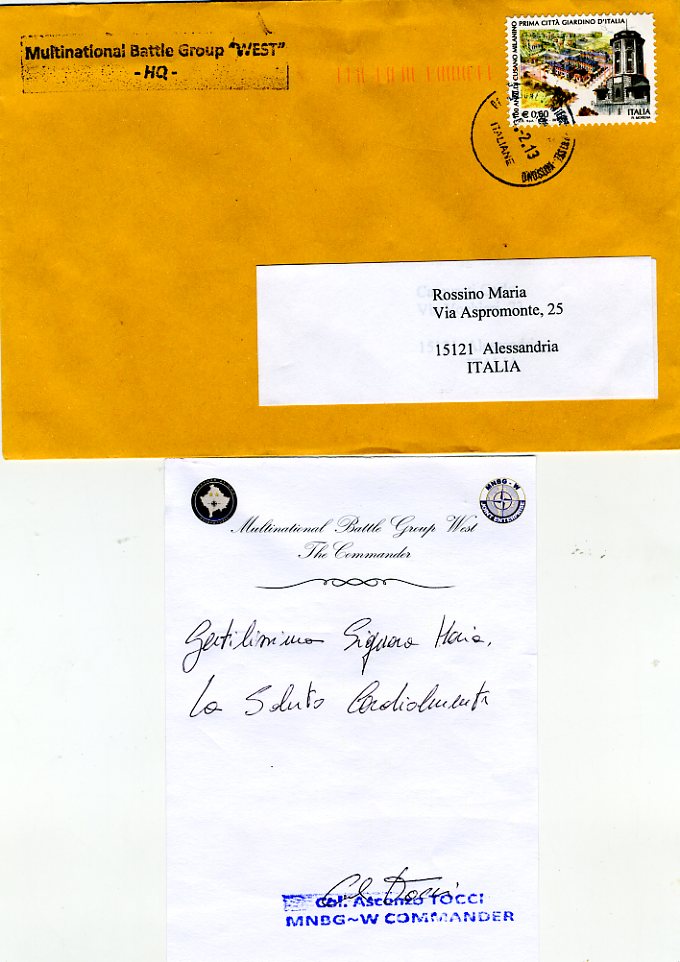 Multinational Battle Group "WEST"
- HQ -
PRIMA CITTÀ GIARDINO D'ITALIA
CUSANO MILANINO
€ 0,60
ITALIA
2.13
ITALIANE
Rossino Maria
Via Aspromonte, 25
15121 Alessandria
ITALIA
MNBG - W
Multinational Battle Group West
The Commander
Gentilissima Signora Maria,
La Saluto Cordialmente
Col. Ascenzo TOCCI
MNBG~W COMMANDER